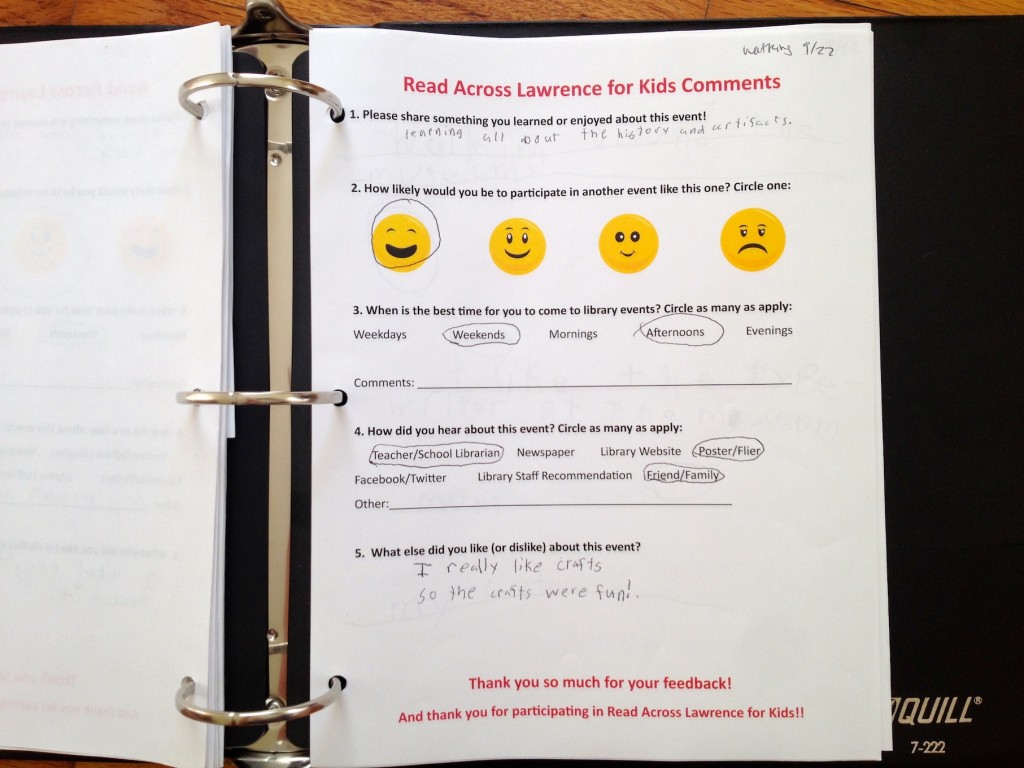 Watkins 9/22
Read Across Lawrence for Kids Comments
1. Please share something you learned or enjoyed about this event!
learning all about the history and artifacts.
2. How likely would you be to participate in another event like this one? Circle one:
3. When is the best time for you to come to library events? Circle as many as apply:
Weekdays Weekends Mornings Afternoons Evenings
Comments:
4. How did you hear about this event? Circle as many as apply:
Teacher/School Librarian Newspaper Library Website Poster/Flier
Facebook/Twitter Library Staff Recommendation Friend/Family
Other:
5. What else did you like (or dislike) about this event?
I really like crafts
so the crafts were fun!.
Thank you so much for your feedback!
And thank you for participating in Read Across Lawrence for Kids!!
QUILL®
7-222